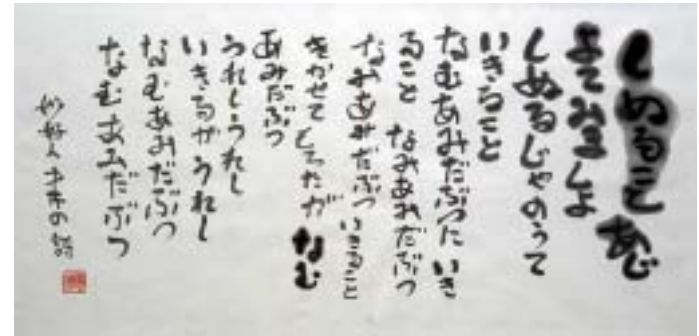 しぬること あじ
よてみましよ
しぬるじゃのうて
いきること
なむあみだぶつに いき
ること なみあみだぶつ
なみあみだぶつ いきること
きかせて もろたが なむ
あみだぶつ
うれしうれし
いきるがうれし
なむあみだぶつ
なむあみだぶつ
妙好人 才市の詩